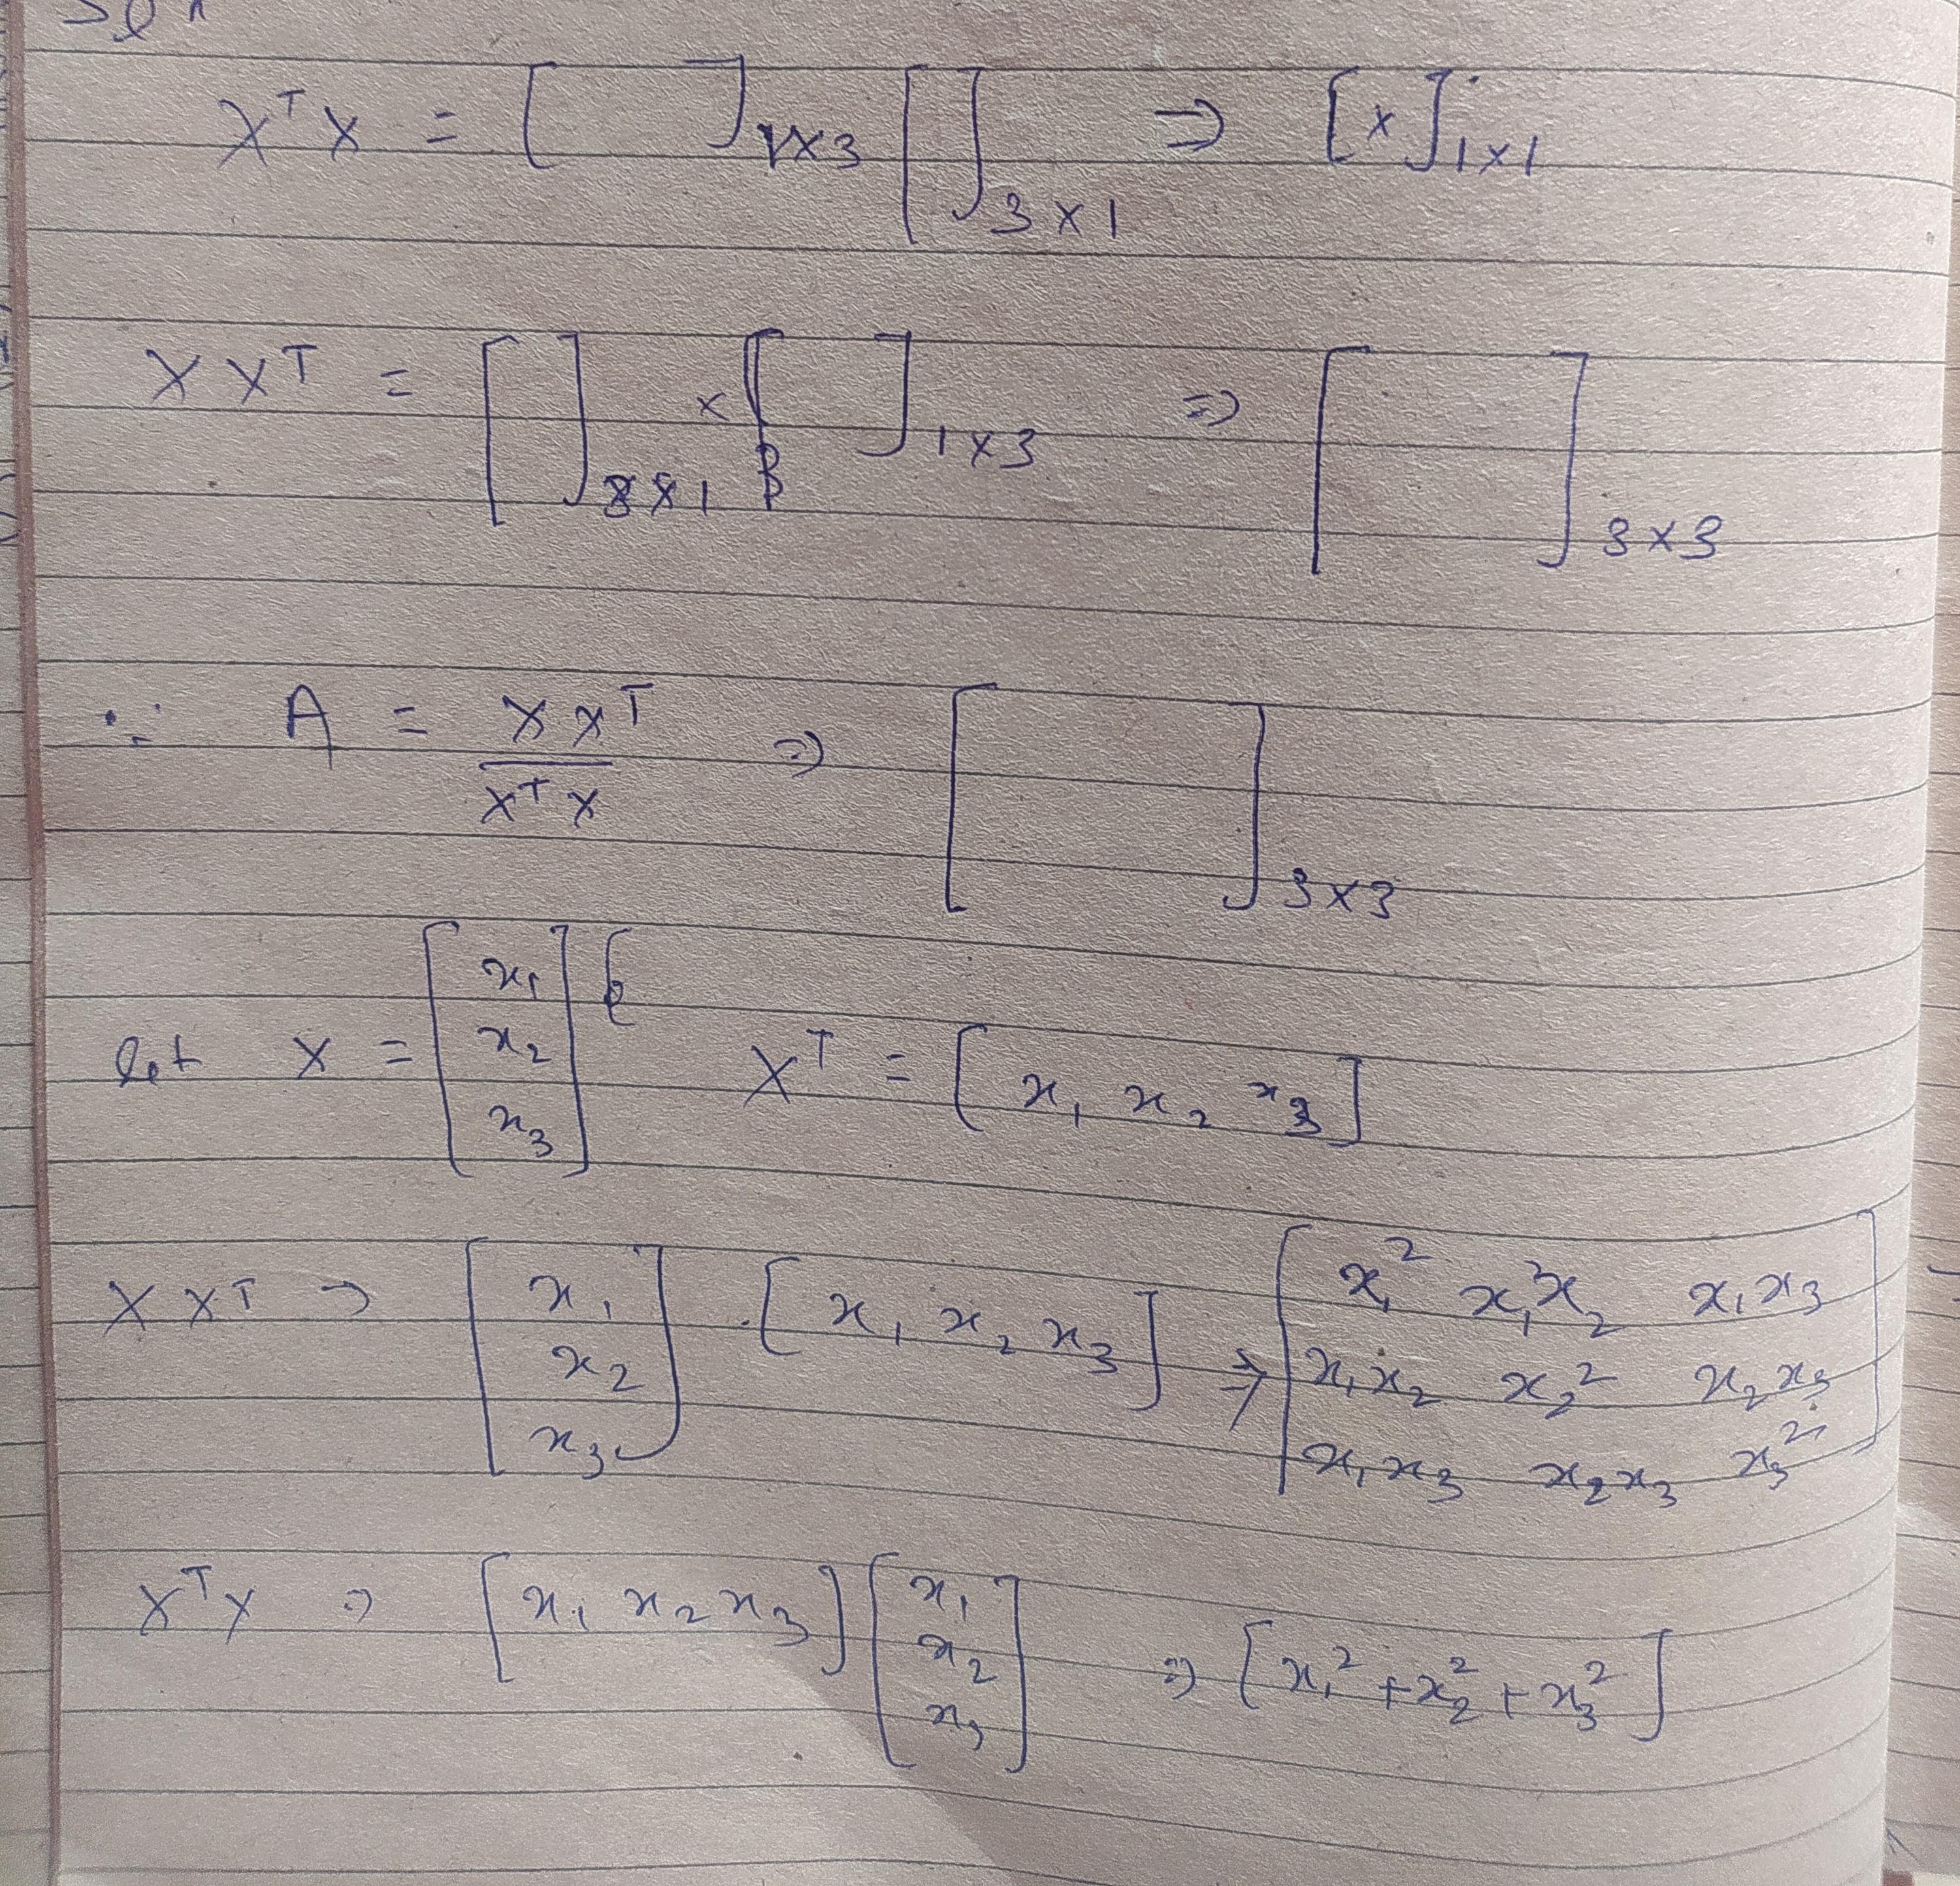 Solⁿ
XᵀX = [ ]₁ₓ₃ [ ]₃ₓ₁ ⇒ [x]₁ₓ₁
XXᵀ = [ ]₃ₓ₁ × [ ]₁ₓ₃ ⇒ [ ]₃ₓ₃
∵ A = XXᵀ / XᵀX ⇒ [ ]₃ₓ₃
let X = [x₁ x₂ x₃] Xᵀ = [x₁ x₂ x₃]
XXᵀ ⇒ [x₁ x₂ x₃] · [x₁ x₂ x₃] ⇒ [x₁² x₁x₂ x₁x₃
x₁x₂ x₂² x₂x₃
x₁x₃ x₂x₃ x₃²]
XᵀX ⇒ [x₁ x₂ x₃] [x₁ x₂ x₃] ⇒ [x₁² + x₂² + x₃²]